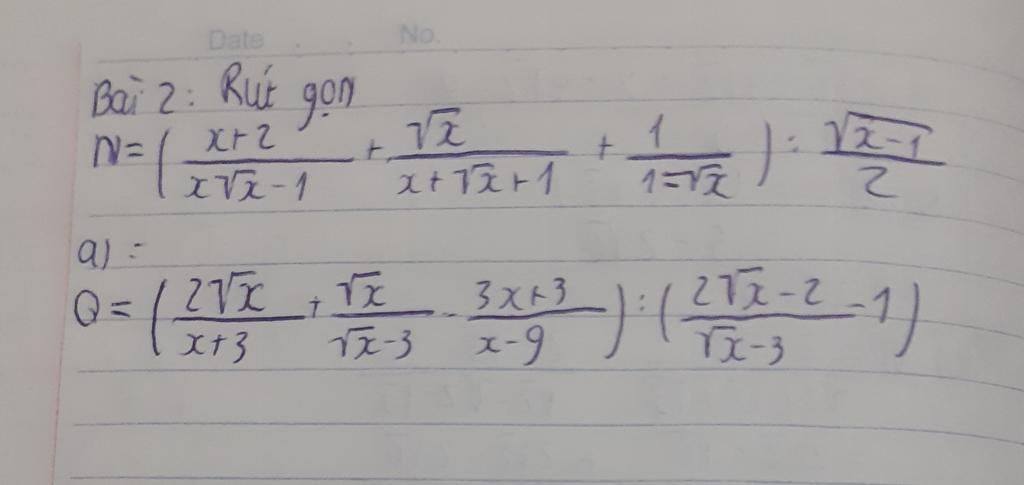 Date No.
Bài 2: Rút gọn
N = ( (x+2)/(x√x-1) + √x/(x+√x+1) + 1/(1-√x) ) : √(x-1)/2
a) :
Q = ( 2√x/(x+3) + √x/(√x-3) - (3x+3)/(x-9) ) : ( (2√x-2)/(√x-3) - 1 )